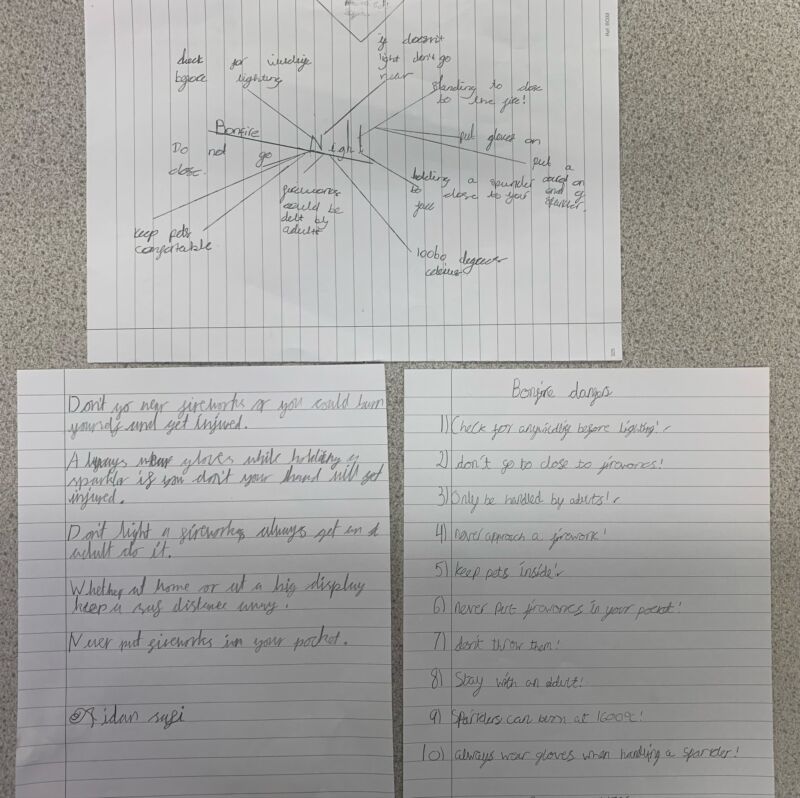 check for wildlife
before lighting
if doesn't
light don't go
near
standing to close
to the fire!
Bonfire Night
put gloves on
put a
carrot on
end of
sparkler.
Do not go
close.
holding a sparkler
to close to your
face
fireworks
could be
delt by
adults
keep pets
comfortable
degrees
celcius
Don't go near fireworks or you could burn
yourself and get injured.
Always wear gloves while holding a
sparklr if you don't your hand will get
injured.
Don't light a fireworks always get an a
adult do it.
Whether at home or at a big display
keep a safe distance away.
Never put fireworks in your pocket.
Aidan
Bonfire dangers
1) Check for any wildlife before lighting!
2) don't go to close to fireworks!
3) Only be handled by adults!
4) never approach a firework!
5) keep pets inside!
6) never put fireworks in your pocket!
7) don't throw them!
8) Stay with an adult!
9) Sparklers can burn at 1600°c!
10) always wear gloves when handling a sparkler!